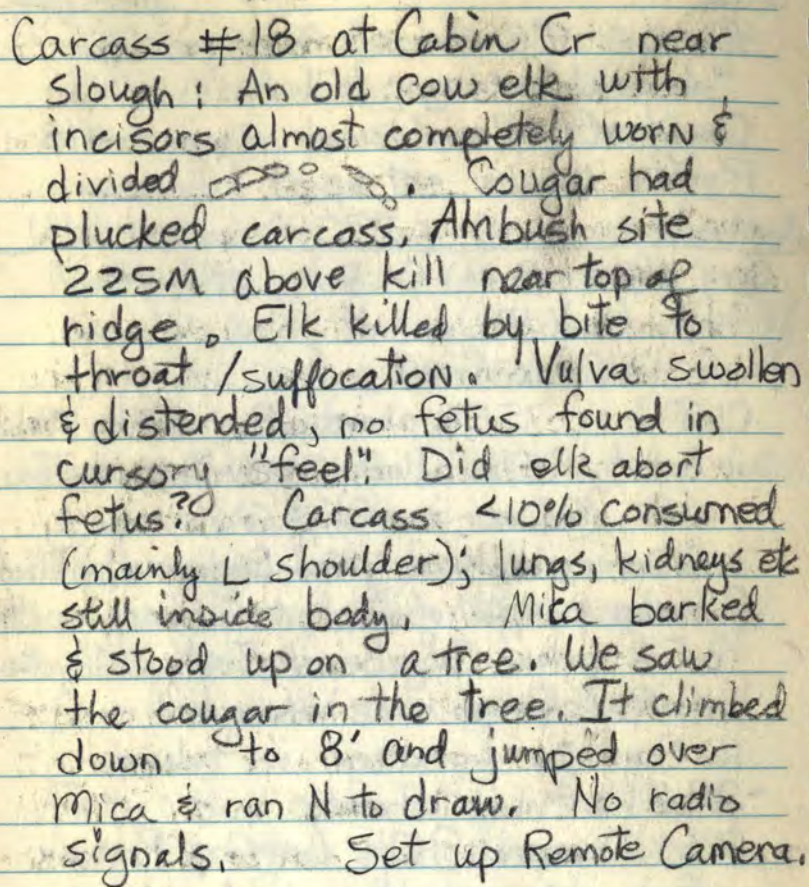 Carcass #18 at Cabin Cr near
slough: An old cow elk with
incisors almost completely worn &
divided. Cougar had
plucked carcass. Ambush site
225M above kill near top of
ridge. Elk killed by bite to
throat/suffocation. Vulva swollen
& distended, no fetus found in
cursory "feel". Did elk abort
fetus? Carcass <10% consumed
(mainly L shoulder); lungs, kidneys etc
still inside body. Mica barked
& stood up on a tree. We saw
the cougar in the tree. It climbed
down to 8' and jumped over
Mica & ran N to draw. No radio
signals. Set up Remote Camera.